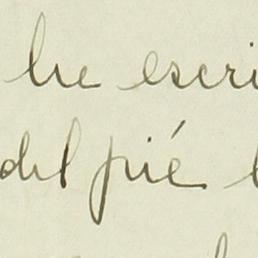 he escri
del pié